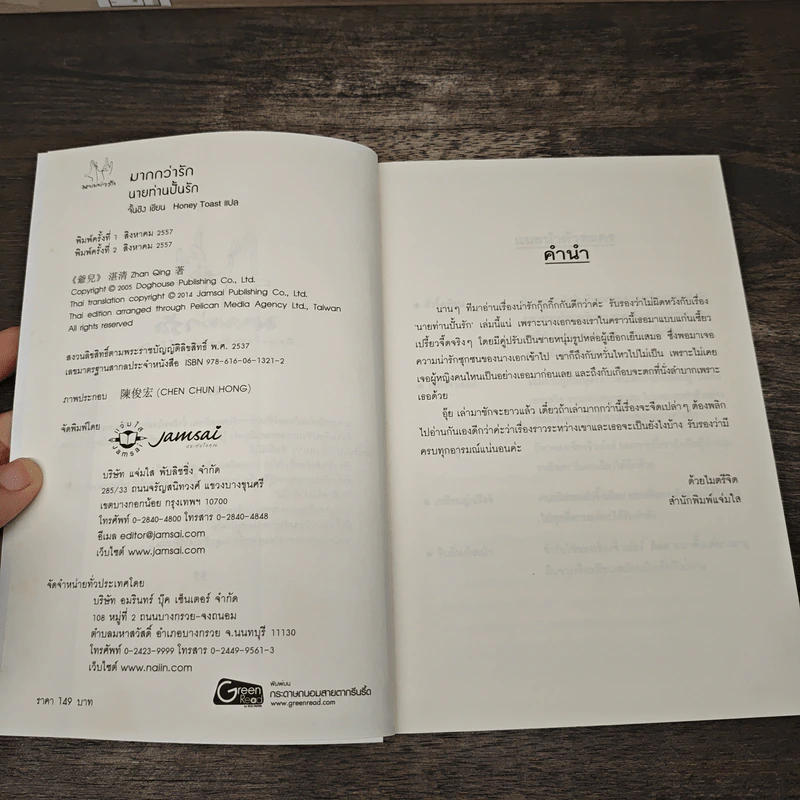 มากกว่ารัก
มากกว่ารัก
นายท่านปั้นรัก
จั้นชิง เขียน Honey Toast แปล
พิมพ์ครั้งที่ 1 สิงหาคม 2557
พิมพ์ครั้งที่ 2 สิงหาคม 2557
《爺兒》 湛清 Zhan Qing 著
Copyright © 2005 Doghouse Publishing Co., Ltd.
Thai translation copyright © 2014 Jamsai Publishing Co., Ltd.
Thai edition arranged through Pelican Media Agency Ltd., Taiwan
All rights reserved
สงวนลิขสิทธิ์ตามพระราชบัญญัติลิขสิทธิ์ พ.ศ. 2537
เลขมาตรฐานสากลประจำหนังสือ ISBN 978-616-06-1321-2
ภาพประกอบ 陳俊宏 (CHEN CHUN HONG)
จัดพิมพ์โดย
แจ่มใส Jamsai
Jamsai
บริษัท แจ่มใส พับลิชชิ่ง จำกัด
285/33 ถนนจรัญสนิทวงศ์ แขวงบางขุนศรี
เขตบางกอกน้อย กรุงเทพฯ 10700
โทรศัพท์ 0-2840-4800 โทรสาร 0-2840-4848
อีเมล editor@jamsai.com
เว็บไซต์ www.jamsai.com
จัดจำหน่ายทั่วประเทศโดย
บริษัท อมรินทร์ บุ๊ค เซ็นเตอร์ จำกัด
108 หมู่ที่ 2 ถนนบางกรวย-จงถนอม
ตำบลมหาสวัสดิ์ อำเภอบางกรวย จ.นนทบุรี 11130
โทรศัพท์ 0-2423-9999 โทรสาร 0-2449-9561-3
เว็บไซต์ www.naiin.com
ราคา 149 บาท
Green Read
พิมพ์บน
กระดาษถนอมสายตากรีนรี้ด
www.greenread.com
คำนำ
นานๆ ทีมาอ่านเรื่องน่ารักกุ๊กกิ๊กกันดีกว่าค่ะ รับรองว่าไม่ผิดหวังกับเรื่อง
'นายท่านปั้นรัก' เล่มนี้แน่ เพราะนางเอกของเราในคราวนี้เธอมาแบบแก่นเซี้ยว
เปรี้ยวจี๊ดจริงๆ โดยมีคู่ปรับเป็นชายหนุ่มรูปหล่อผู้เยือกเย็นเสมอ ซึ่งพอมาเจอ
ความน่ารักซุกซนของนางเอกเข้าไป เขาก็ถึงกับหวั่นไหวไปไม่เป็น เพราะไม่เคย
เจอผู้หญิงคนไหนเป็นอย่างเธอมาก่อนเลย และถึงกับเกือบจะตกที่นั่งลำบากเพราะ
เธอด้วย
อุ๊ย เล่ามาชักจะยาวแล้ว เดี๋ยวถ้าเล่ามากกว่านี้เรื่องจะจืดเปล่าๆ ต้องพลิก
ไปอ่านกันเองดีกว่าค่ะว่าเรื่องราวระหว่างเขาและเธอจะเป็นยังไงบ้าง รับรองว่ามี
ครบทุกอารมณ์แน่นอนค่ะ
ด้วยไมตรีจิต
สำนักพิมพ์แจ่มใส